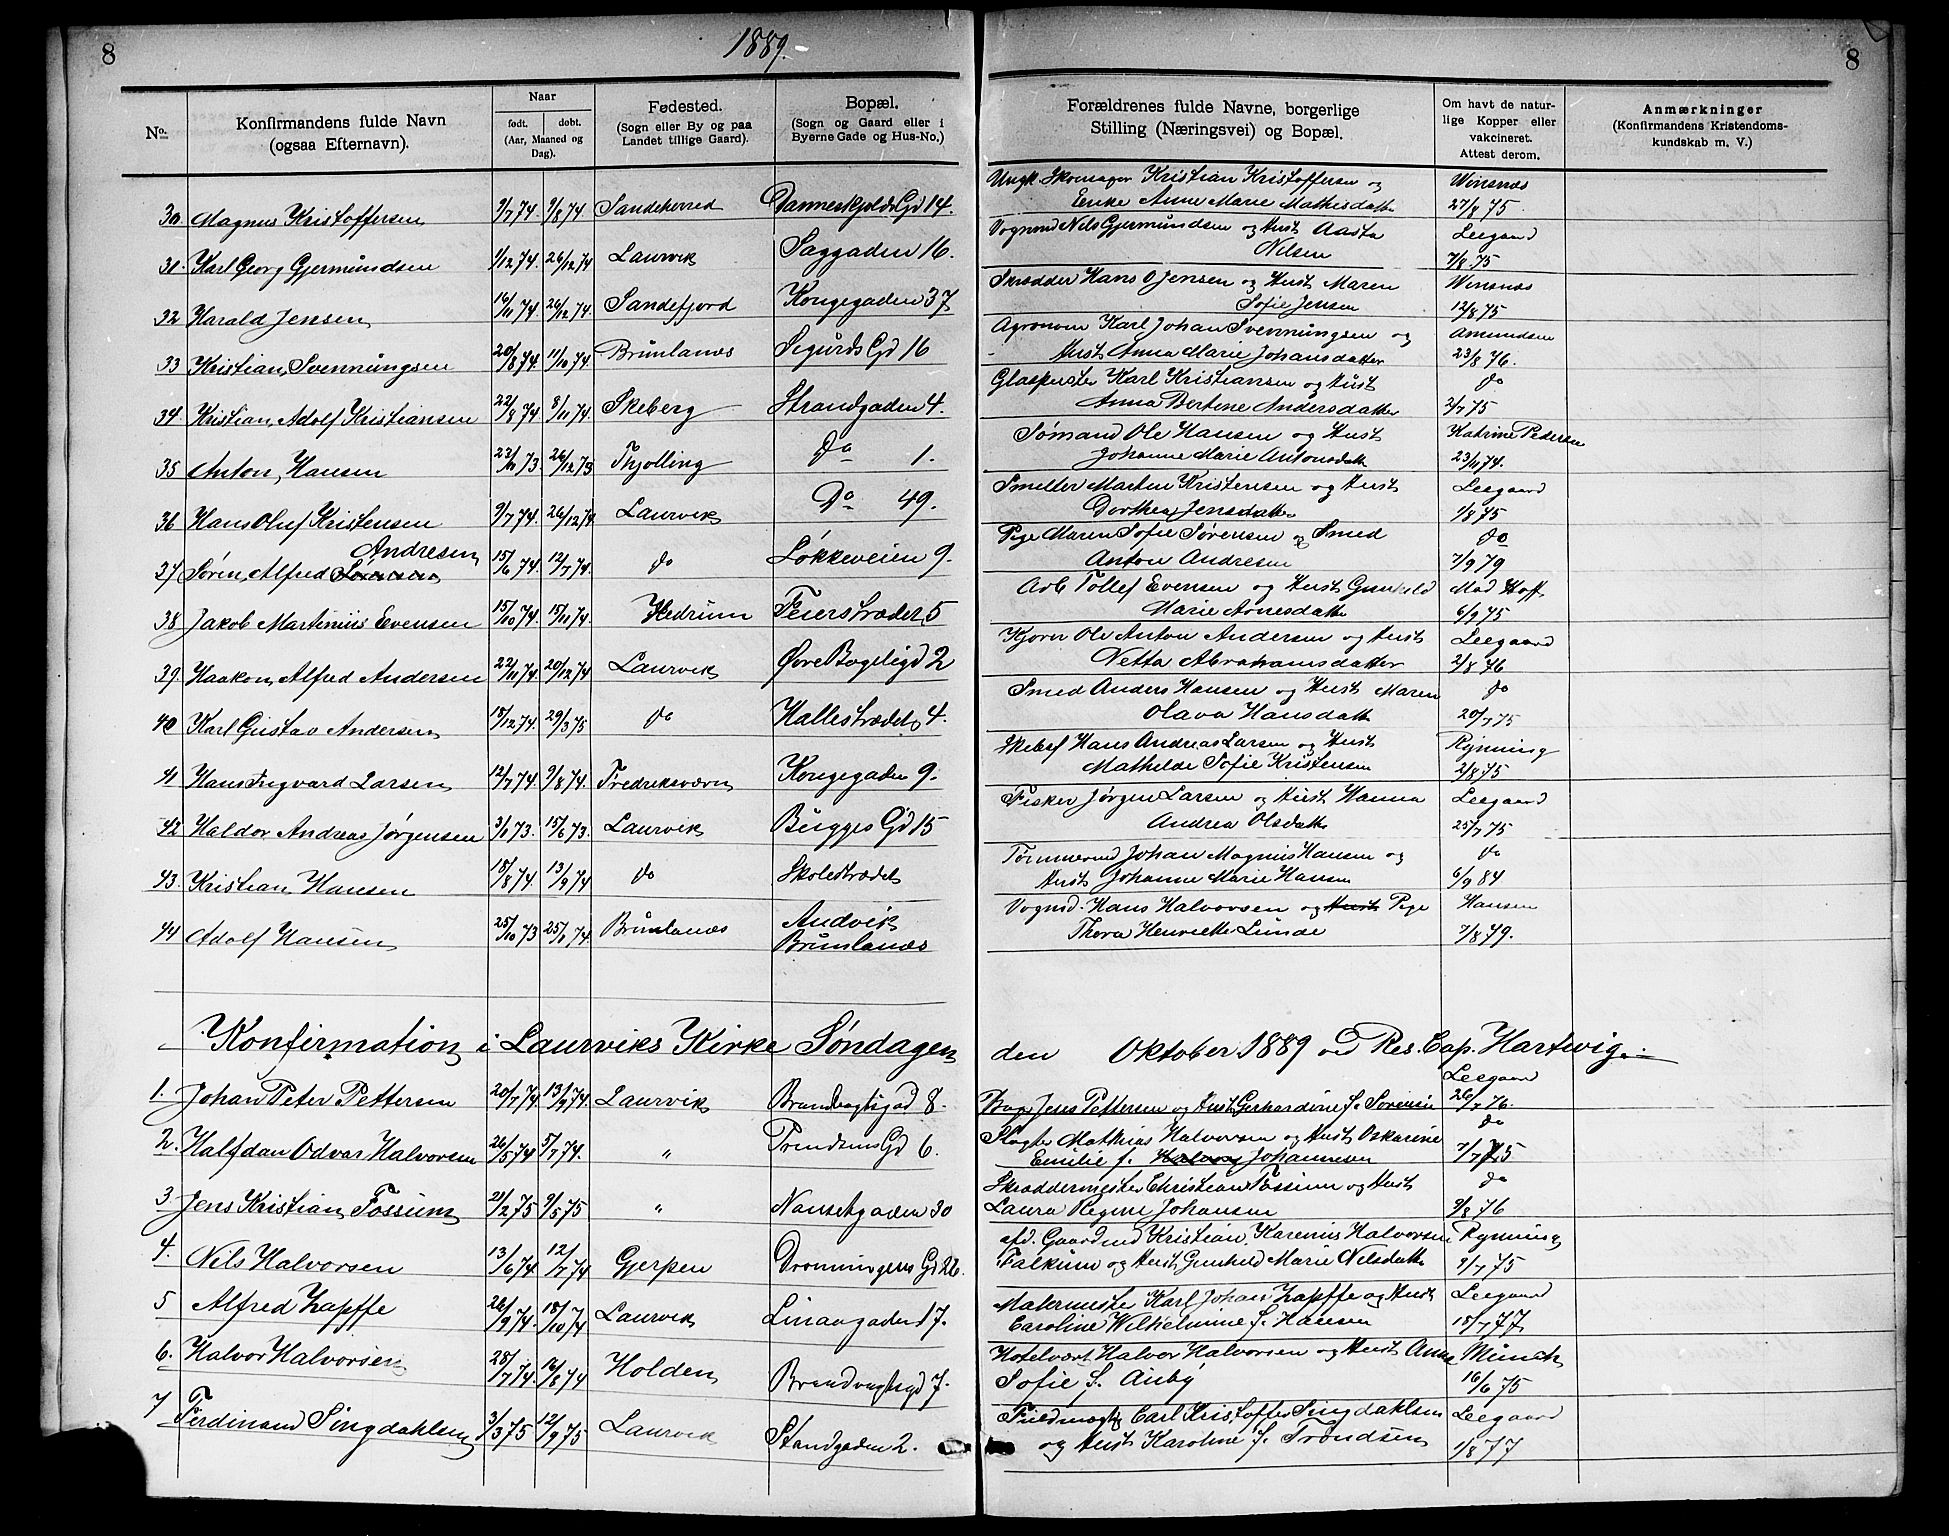 8
1889.
8
No.
Konfirmandens fulde Navn
(ogsaa Efternavn).
Naar
født. døbt.
(Aar, Maaned og
Dag).
Fødested.
(Sogn eller By og paa
Landet tillige Gaard).
Bopæl.
(Sogn og Gaard eller i
Byerne Gade og Hus-No.)
Forældrenes fulde Navne, borgerlige
Stilling (Næringsvei) og Bopæl.
Om havt de natur-
lige Kopper eller
vakcineret.
Attest derom.
Anmærkninger
(Konfirmandens Kristendoms-
kundskab m. V.)
30 Magnus Kristoffersen 9/7 74 9/8 74 Sandeherred Danneskjolds Gd 14.
Ungk. Skomager Kristian Kristoffersen og Winsnæs
Enke Anne Marie Mathisdatter 27/8 75.
31. Karl Georg Gjermundsen 1/12 74. 26/12 74 Laurvik Saggaden 16.
Vognmd Nils Gjermundsen og Hust Aasta Leegaard
Nilsen 7/8 75
32 Harald Jensen 16/11 74. 26/12 74. Sandefjord Kongegaden 37
Skrædder Hans O Jensen og Hust Maren Winsnæs
Sofie Jensen 12/8 75
33 Kristian Svenningsen 20/8 74. 11/10 74. Brunlanæs Sigurds Gd 16
Agronom Karl Johan Svenningsen og Amundsen
Hust Anna Marie Johansdatter 23/8 76.
34. Kristian Adolf Kristiansen 22/8 74 8/11 74. Skeberg Strandgaden 4.
Glaspuster Karl Kristiansen og Hust do
Anna Bertine Andersdatter 2/7 75
35 Anton Hansen 23/11 73. 26/12 73 Thjølling do 1.
Sømand Ole Hansen og Hust Katrine Pedersen
Johanne Marie Antonsdatt 23/11 74.
36 Hans Oluf Kristensen 9/7 74. 26/12 74. Laurvik Do 49.
Smelter Martin Kristensen og Hust Leegaard
Dorthea Jensdatter 1/8 75
Andresen
37 Søren Alfred Sørensen 15/6 74. 12/7 74. do Løkkeveien 9.
Pige Maren Sofie Sørensen og Smed do
Anton Andresen 7/9 79
38 Jakob Martinius Evensen 15/10 74. 15/11 74. Hedrum Feierstrædet 5
Arb Tollef Evensen og Hust Gunhild Mad Hoff
Marie Arnesdatt 6/9 75
39. Haakon Alfred Andersen 22/11 74. 20/12 74 Laurvik Øvre Bøgeligd 2
Kjører Ole Anton Andersen og Hust Leegaard
Netta Abrahamsdatter 2/8 76
40 Karl Gustav Andersen 15/12 74. 29/3 75 do Hallestrædet 4.
Smed Anders Hansen og Hust Maren do
Olava Hansdatt 20/7 75
41 Hans Ingvard Larsen 12/7 74. 9/8 74. Fredriksværn Kongegaden 9.
Hans Andreas Larsen og Hust Rynning
Mathilde Sofie Kristensen 2/8 75
42 Haldor Andreas Jørgensen 3/1 73. 15/6 73. Laurvik Bugges Gd 15
Fisker Jørgen Larsen og Hust Hanna Leegaard
Andrea Olsdatt 25/7 75
43. Kristian Hansen 18/8 74. 13/9 74 do Skolestrædet
Tømmermd Johan Magnus Hansen og do
Hust Johanne Marie Hansen 6/9 84
44 Adolf Hansen 25/10 73 25/1 74. Brunlanæs Andvik
Brunlanæs
Vognmd. Hans Halvorsen og Hust Pige Hansen
Thora Henriette Lunde 7/8 79.
Konfirmation i Laurviks Kirke Søndagen den Oktober 1889 ved Res. Cap. Hartwig.
1. Johan Peter Pettersen 20/7 74. 13/9 74. Laurvik Brandvagtsgad 8.
Leegaard
Jens Pettersen og Hust Gerhardine f. Sørensen 26/7 76.
2. Halfdan Odvar Halvorsen 26/5 74 5/7 74. " 6.
Slagter Mathias Halvorsen og Hust Oskarine do
Emilie f. Johannesen 7/7 75
3. Jens Kristian Fossum 21/2 75 9/5 75 " Nansetgaden 30
Skræddermester Christian Fossum og Hust do
Laura Regine Johansen 9/8 76
4. Nils Halvorsen 13/6 74 12/7 74 Gjerpen Dronningens Gd 26.
afd. Gaardmd Kristian Karenius Halvorsen Rynning
Falkum og Hust Gunhild Marie Nilsdatt 9/7 75
5 Alfred Zapffe 26/9 74. 18/10 74 Laurvik Linaagaden 17.
Malermester Karl Johan Zapffe og Hust Leegaard
Caroline Wilhelmine f. Hansen 18/7 77
6. Halvor Halvorsen 28/7 74. 16/8 74 Holden Brandvagtsgd 7.
Hotelvært Halvor Halvorsen og Hust Anne Münch
Sofie f. Auby 16/6 75
7 Ferdinand Singdahlsen 3/3 75 12/9 75 Laurvik Standgaden 2.
Fuldmægtig Carl Kristoffer Singdahlsen Leegaard
og Hust Karoline f. Trondsen 1/8 77